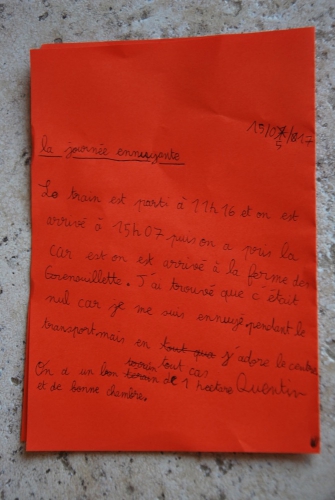 15/05/2017
la journée ennuyante
Le train est parti à 11h16 et on est
arrivé à 15h07 puis on a pris la
car est on est arrivé à la ferme des
. J'ai trouvé que c'était
nul car je me suis ennuyé pendent le
transport mais en tout cas j'adore le centre
On a un bon terrain de 1 hectare Quentin
et de bonne chambre.